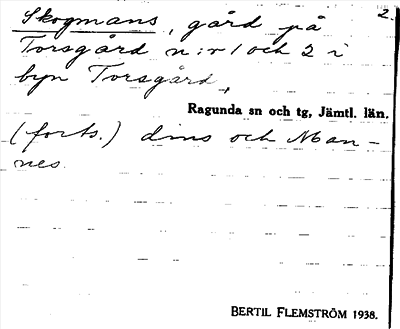 2.
Skogmans, gård på
Torsgård n:r 1 och 2 i
byn Torsgård,
Ragunda sn och tg, Jämtl. län.
(forts.) dins och Man-
nes.
BERTIL FLEMSTRÖM 1938.